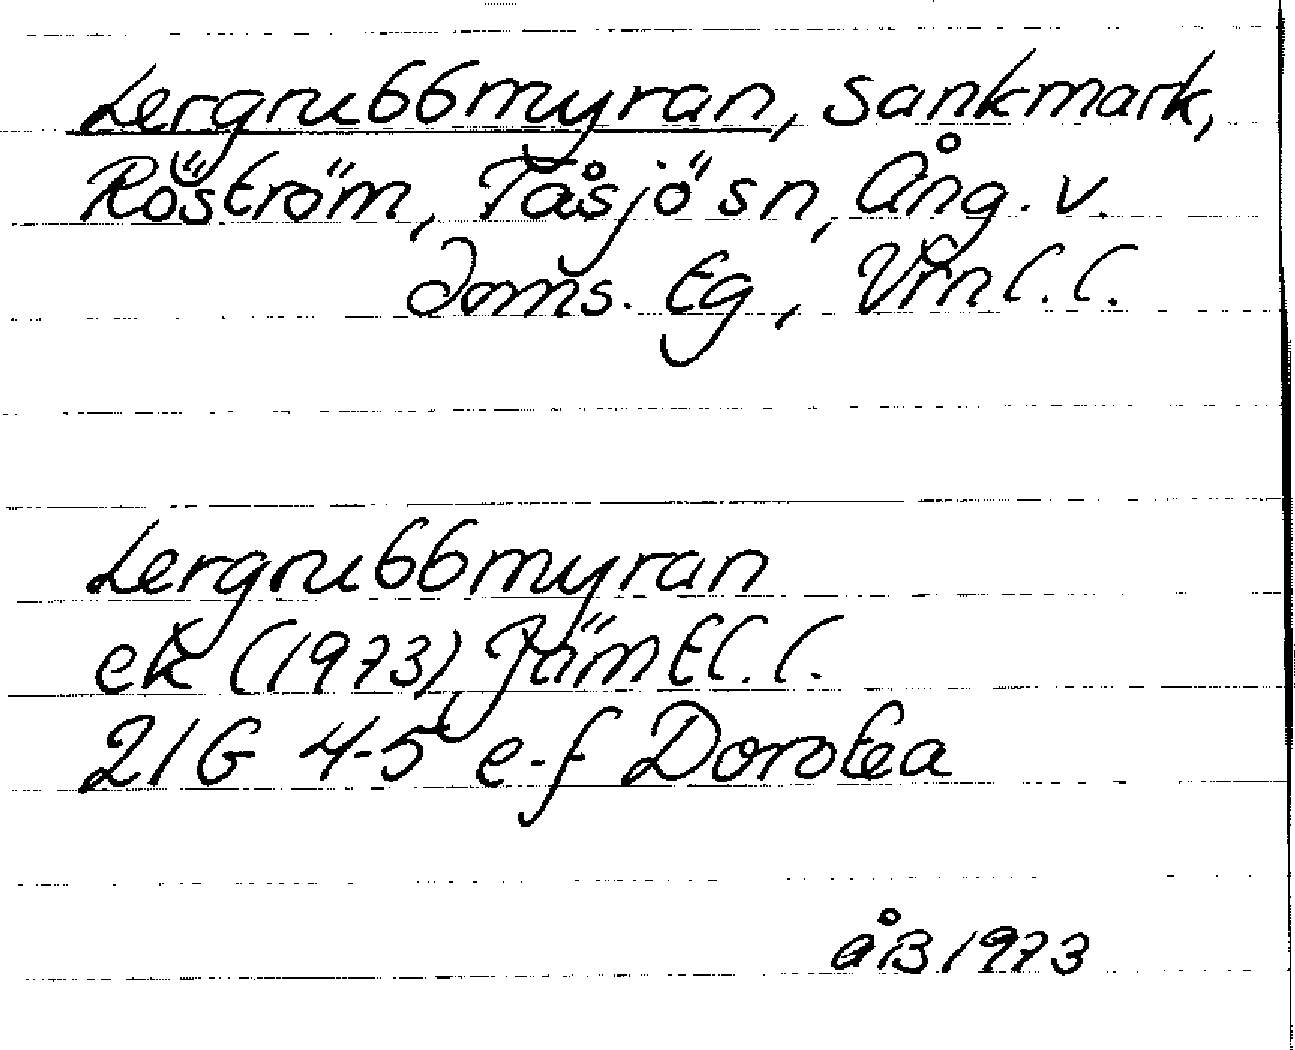 Lergrubbmyran, sankmark,
Röström, Tåsjö sn, Ång. v.
Doms. Eg., Vrnl. l.
Lergrubbmyran
ek (1973), Jämtl. l.
21G 4-5 e-f Dorotea
åB 1973